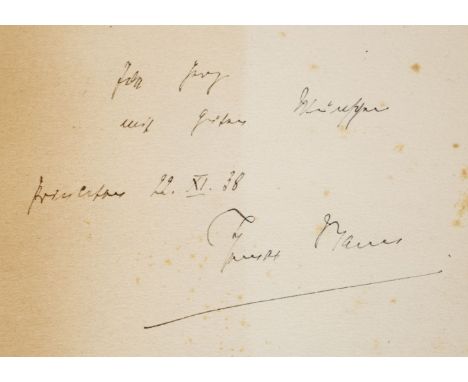 Ida Herz
mit guten Wünschen
Princeton 22. XI. 38
Thomas Mann